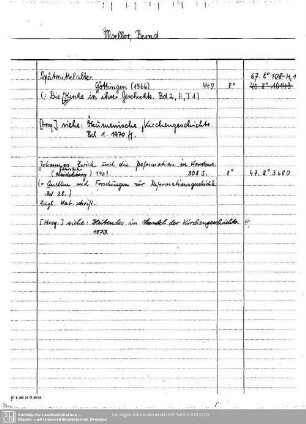 Moeller, Bernd
Spätmittelalter.
Göttingen (1966) 44 S. 8° 67. 8° 108-H,1
(: Die Kirche in ihrer Geschichte. Bd 2, II, T. 1)
[Hrsg.] siehe: Ökumenische Kirchengeschichte.
Bd 1. 1970 ff.
Johannes Zwick und die Reformation in Konstanz.
1961. 308 S. 8° 67. 8° 3680
(= Quellen und Forschungen zur Reformationsgeschichte
Bd 28.)
Zugl. Hab. schrift.
[Hrsg.] siehe: Bleibendes im Wandel der Kirchengeschichte.
1973.